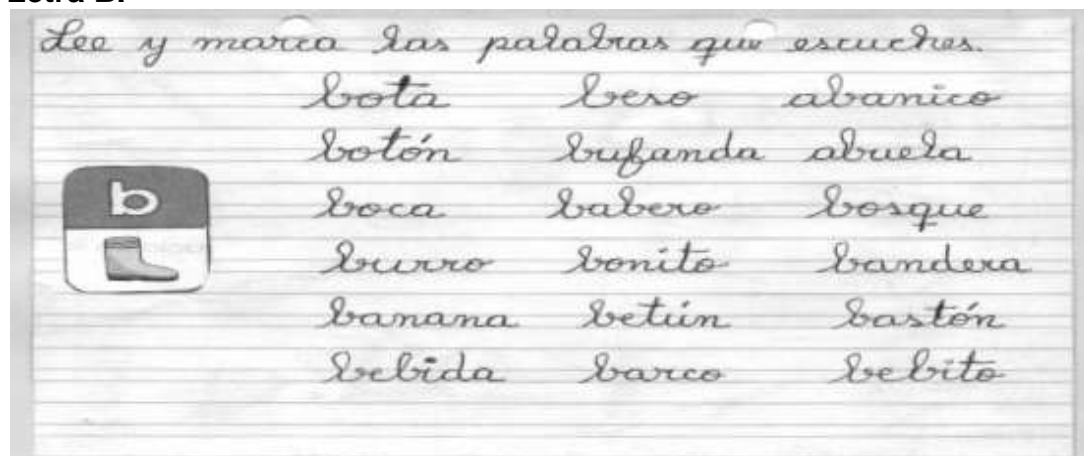 Letra B.
Lee y marca las palabras que escuches.
bota beso abanico
botón bufanda abuela
b
boca babero bosque
burro bonito bandera
banana betún bastón
bebida barco bebito